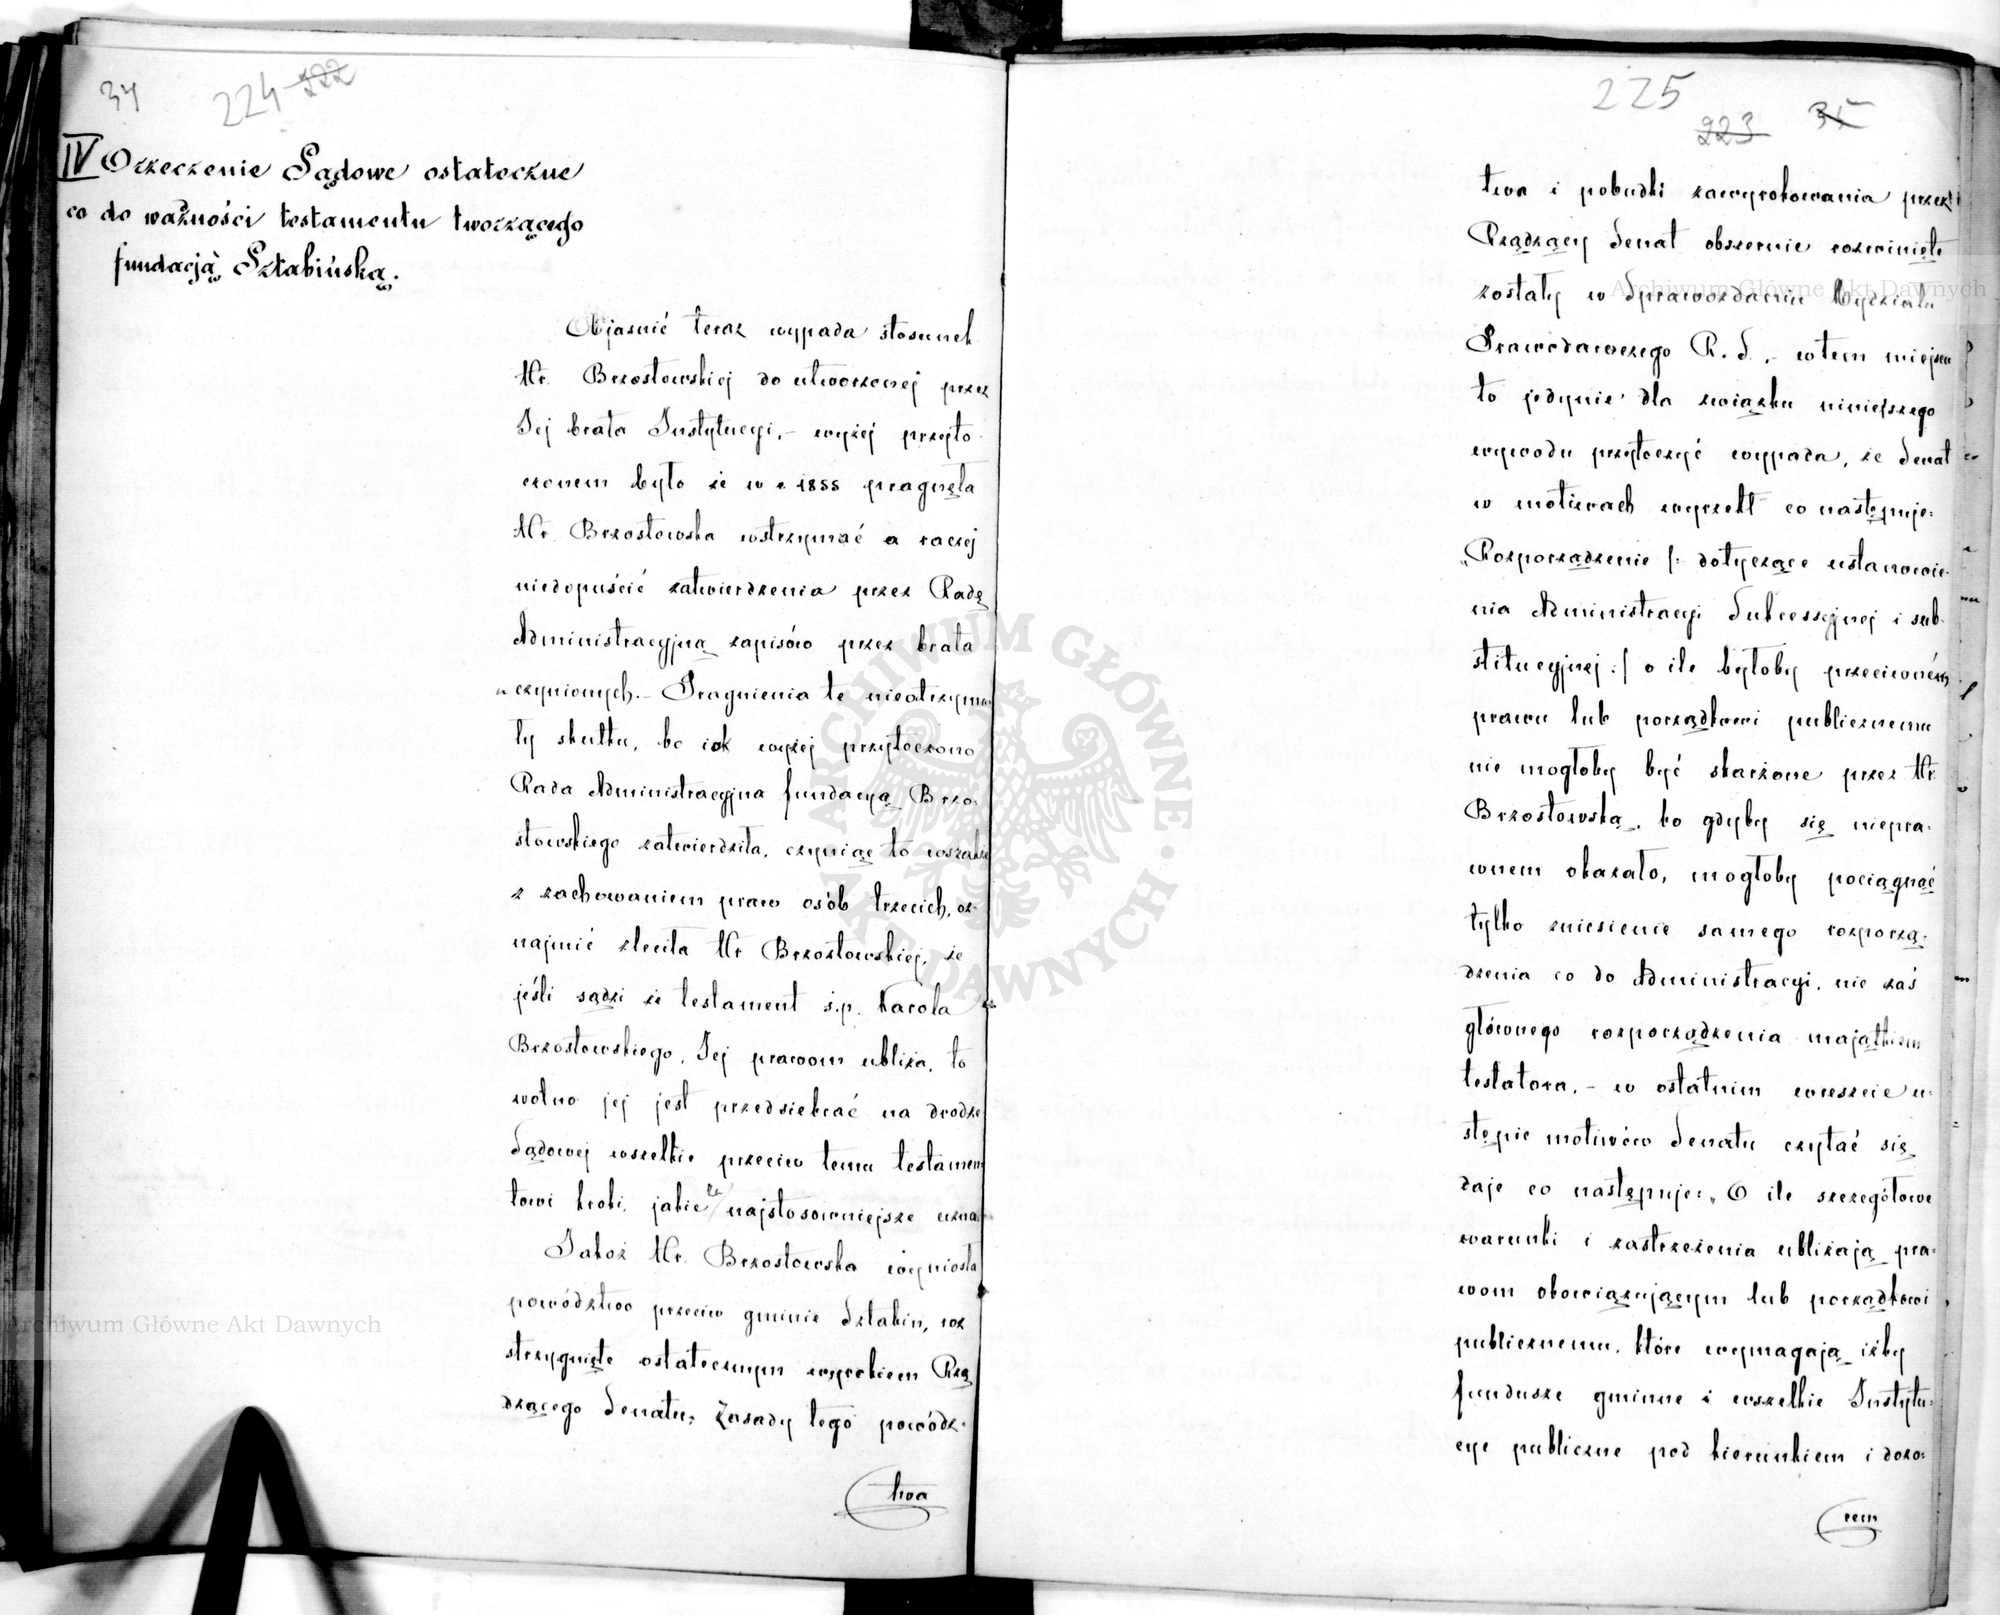 34
224 222
IV Orzeczenie Sądowe ostateczne
co do ważności testamentu tworzącego
fundacją Sztabińską.
Objasnić teraz wypada stosunek
Hr. Brzostowskiej do utworzonej przez
Jej brata Instytucyi, – wyżej przyto-
czonem było że w r. 1855 pragnęła
Hr. Brzostowska wstrzymać a raczej
niedopuścić zatwierdzenia przez Radę
Administracyjną zapisów przez brata
uczynionych. – Pragnienia te nieotrzyma-
ły skutku, bo jak wyżej przytoczono
Rada Administracyjna fundacyą Brzo-
stowskiego zatwierdziła, czyniąc to wszakże
z zachowaniem praw osób trzecich, oz-
najmić zleciła Hr Brzostowskiej, że
jeśli sądzi że testament ś.p. Karola
Brzostowskiego, Jej prawom ubliża, to
wolno jej jest przedsiebrać na drodze
Sądowej wszelkie przeciw temu testamen-
towi kroki, jakie za najstosowniejsze uzna.
Jakoż Hr. Brzostowska wyniosła
powództwo przeciw gminie Sztabin, roz
strzygnięte ostatecznym wyrokiem Rzą
dzącego Senatu, Zasady tego powódz-
twa
225
223 35
twa i pobudki zawyrokowania przez
Rządzący Senat obszernie rozwinięte
zostały w Sprawozdaniu Wydziału
Prawodawczego R. S. – w tem miejscu
to jedynie dla związku niniejszego
wywodu przytoczyć wypada, że Senat
w motivach wyrzekł co następuje:
„Rozporządzenie /: dotyczące ustanowie-
nia Administracyi Sukcessyjnej i sub-
stitucyjnej :/ o ile byłoby przeciwném
prawu lub porządkowi publicznemu
nie mogłoby być skarżone przez Hr.
Brzostowską, bo gdyby się niepra-
wnem okazało, mogłoby pociągnąć
tylko zniesienie samego rozporzą-
dzenia co do Administracyi, nie zaś
głównego rozporządzenia majątkiem
testatora, – w ostatnim wreszcie u-
stępie motivów Senatu czytać się
daje co następuje: „O ile szczegółowe
warunki i zastrzeżenia ubliżają pra-
wom obowiązującym lub porządkowi
publicznemu, które wymagają iżby
fundusze gminne i wszelkie Instytu-
cye publiczne pod kierunkiem i dozo-
rem
Archiwum Główne Akt Dawnych
Archiwum Główne Akt Dawnych
ARCHIWUM GŁÓWNE AKT DAWNYCH